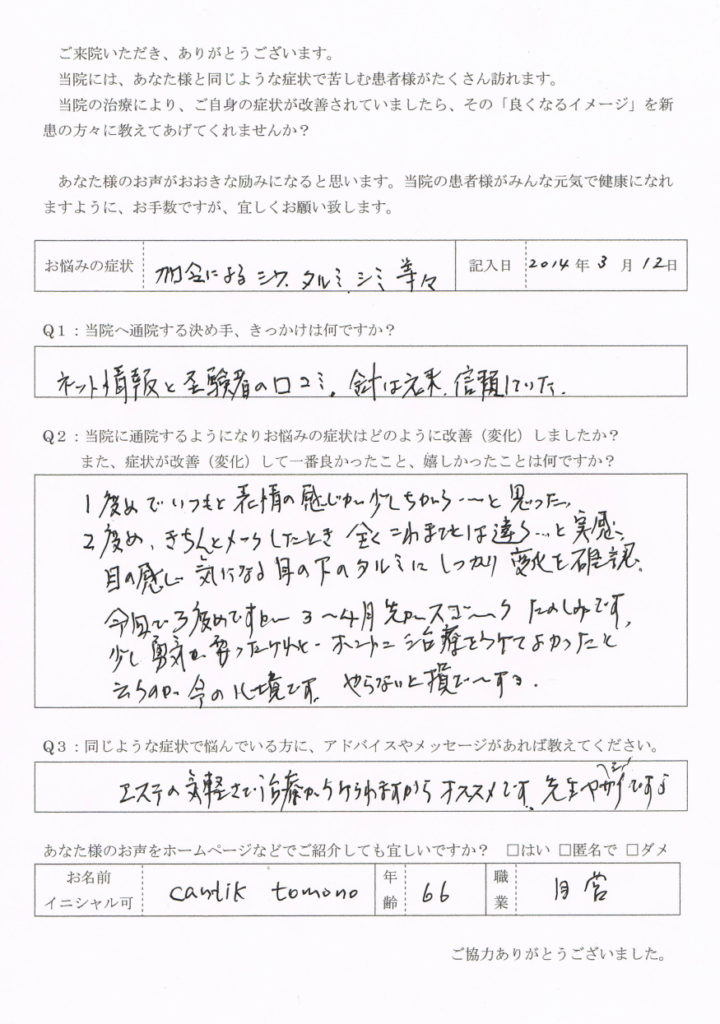 ご来院いただき、ありがとうございます。
当院には、あなた様と同じような症状で苦しむ患者様がたくさん訪れます。
当院の治療により、ご自身の症状が改善されていましたら、その「良くなるイメージ」を新
患の方々に教えてあげてくれませんか?
あなた様のお声がおおきな励みになると思います。当院の患者様がみんな元気で健康になれ
ますように、お手数ですが、宜しくお願い致します。
お悩みの症状 加令によるシワ、タルミ、シミ等々 記入日 2014年3月12日
Q1:当院へ通院する決め手、きっかけは何ですか?
ネット情報と経験者の口コミ。針は元来、信頼していた。
Q2:当院に通院するようになりお悩みの症状はどのように改善(変化)しましたか?
また、症状が改善(変化)して一番良かったこと、嬉しかったことは何ですか?
1度めでいつもと表情の感じが少しちがう…と思った。
2度め、きちんとメークしたとき全くこれまでとは違う…と実感。
目の感じ 気になる目の下のタルミにしっかり変化を確認。
今回で3度めですが 3〜4月先がスゴーク たのしみです。
少し勇気が要ったけれど ホントに治療をうけてよかったと
云うのが今の心境です。やらないと損で〜する.
Q3:同じような症状で悩んでいる方に、アドバイスやメッセージがあれば教えてください。
エステの気軽さで治療がうけられますからオススメです。先生や
あなた様のお声をホームページなどでご紹介しても宜しいですか? □はい □匿名で □ダメ
お名前
イニシャル可 cantik tomono 年齢 66 職業 自営
ご協力ありがとうございました。